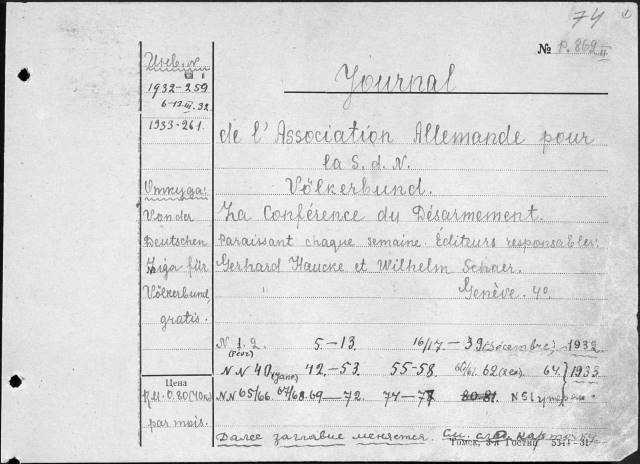 74
№ P. 862 II
Journal
de l'Association Allemande pour
la S. d. N.
Völkerbund.
La Conférence du Désarmement.
Paraissant chaque semaine. Éditeurs responsables:
Gerhard Haucke et Wilhelm Schaer.
" Genève. 4°
N 1. 2. 5–13 16/17 – 39 (Décembre) 1932
(févr)
NN 40 (Janv) 42–53. 55–58. 60/61. 62 64. 1933
NN 65/66. 67/68. 69 – 72. 74 – 77 80.81. N 51
Далее заглавие меняется. См. след. карточку
Томск, 3-я Гостип 5341–31
1932–259
6-13 III. 32
1933–261.
Откуда:
Von der
Deutschen
Liga für
Völkerbund,
gratis.
Цена
RM. 0.80
par mois.